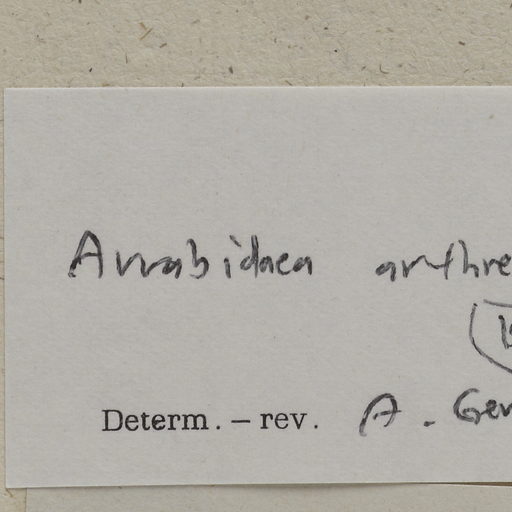 Arrabidaea arthre
Determ. – rev. A. Gen